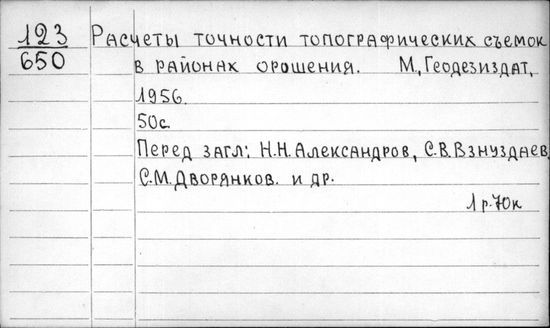 123 Расчеты точности топографических съемок
650 в районах орошения. М, Геодезиздат,
1956.
50с.
Перед загл: Н.Н.Александров, С.В.Взнуздаев,
С.М.Дворянков. и др.
1р.70к